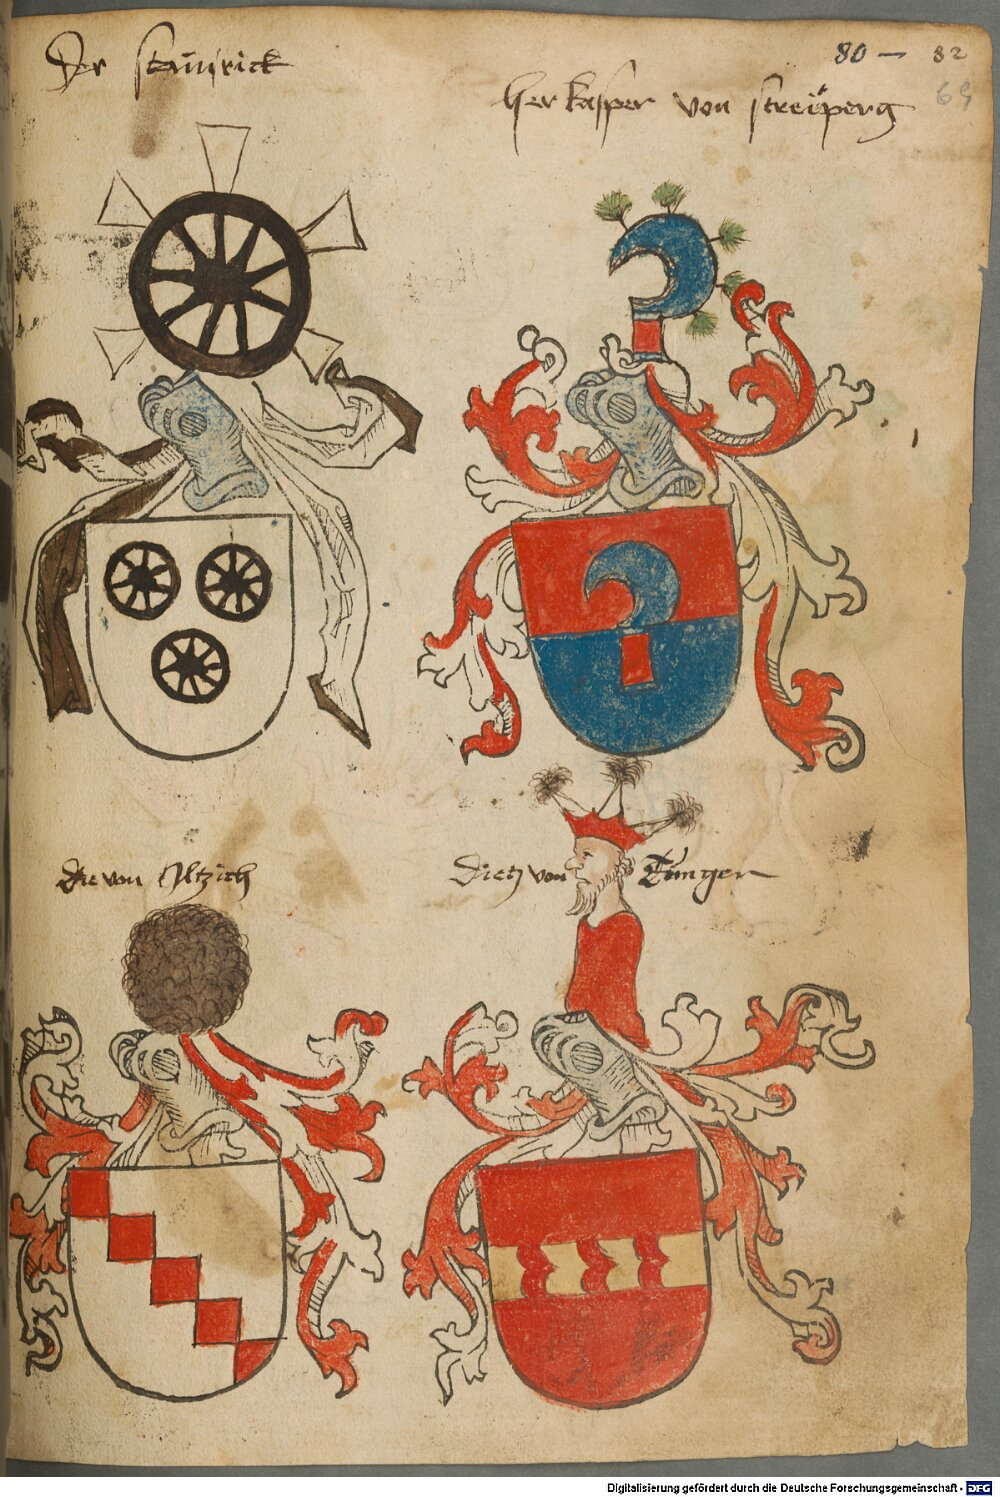 Der stainrick
80 — 82
69
her kasper von streÿperg
die von Altzich
Dietz von Tünger
Digitalisierung gefördert durch die Deutsche Forschungsgemeinschaft - DFG